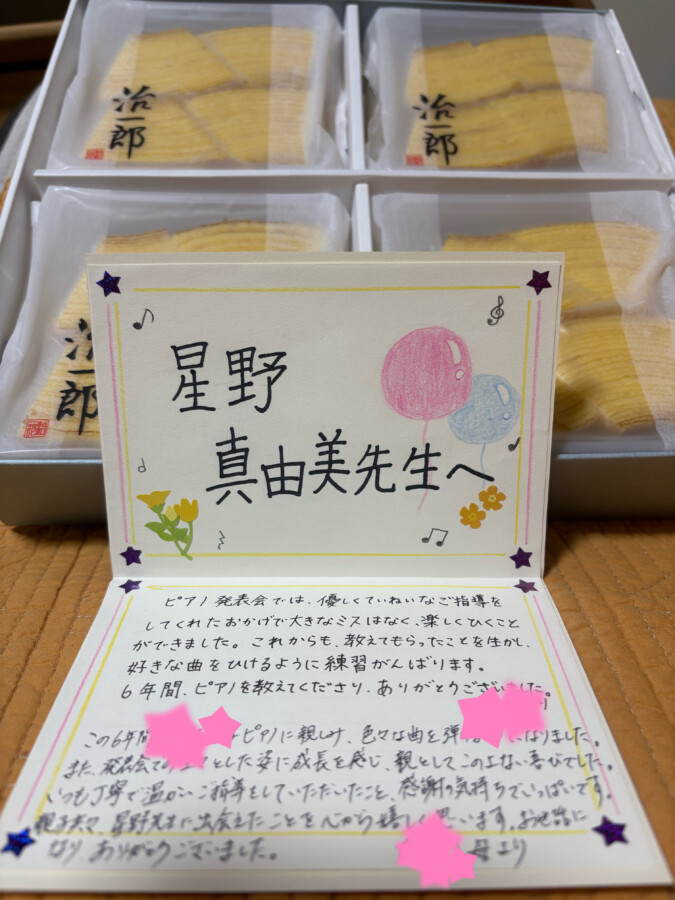 治一郎
治一郎
治一郎
星野
真由美先生へ
ピアノ発表会では、優しくていねいなご指導を
してくれたおかげで大きなミスはなく、楽しくひくこと
ができました。これからも、教えてもらったことを生かし、
好きな曲をひけるように練習がんばります。
6年間、ピアノを教えてくださり、ありがとうございました。
より
この6年間 ピアノに親しみ、色々な曲を弾 なりました。
また、発表会での とした姿に成長を感じ、親としてこの上ない喜びでした。
いつも丁寧で温かいご指導をしていただいたこと、感謝の気持ちでいっぱいです。
親子共々、星野先生に出会えたことを心から嬉しく思います。お世話に
なり、ありがとうございました。
母より